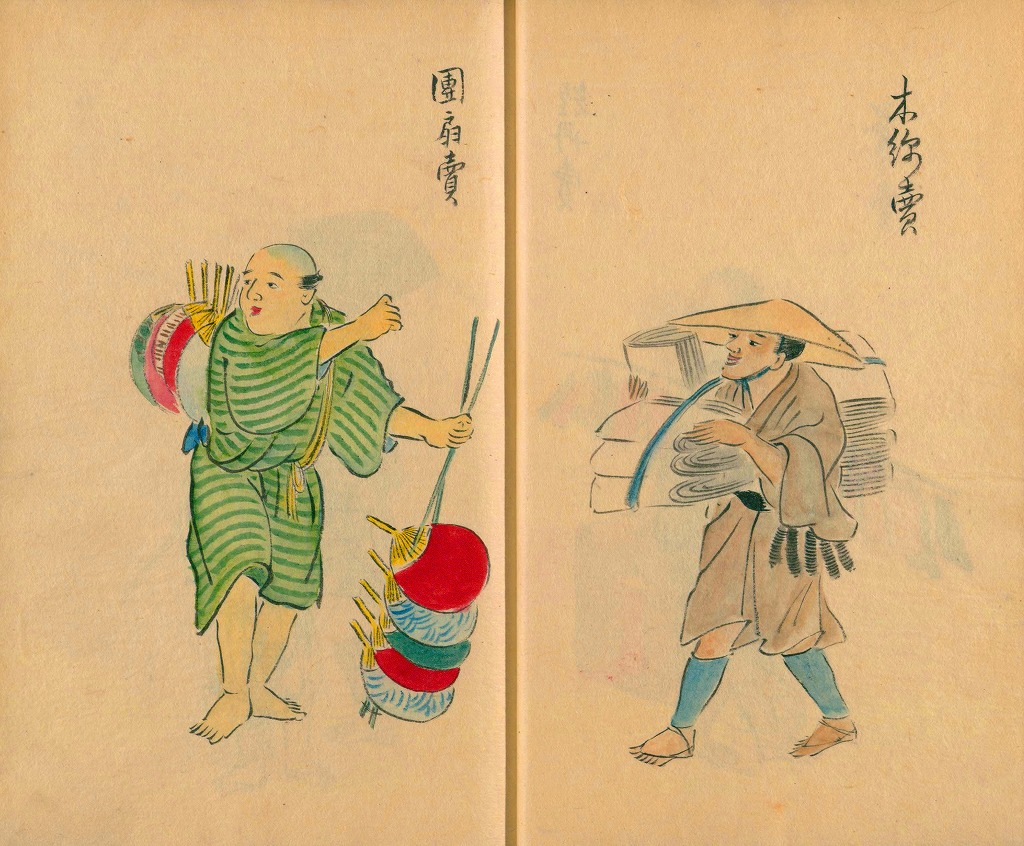 木綿賣
團扇賣